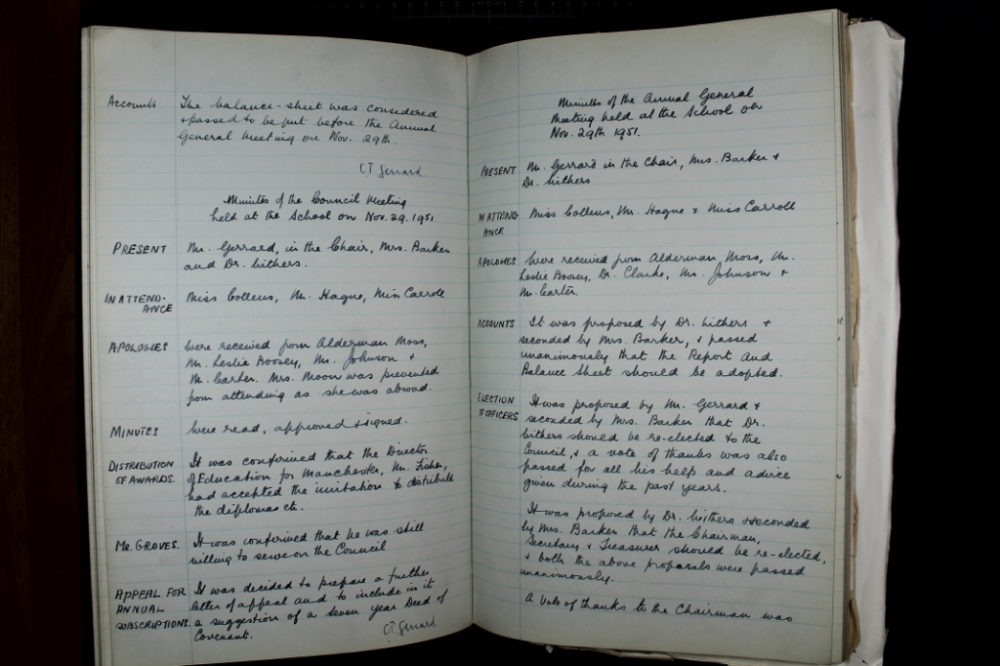 Accounts The balance-sheet was considered
& passed to be put before the Annual
General Meeting on Nov. 29th.
C.T. Gerrard
Minutes of the Council Meeting
held at the School on Nov. 29. 1951
PRESENT Mr. Gerrard, in the Chair, Mrs. Barker
and Dr. Withers.
IN ATTEND- Miss Collens, Mr. Hague, Miss Carroll
ANCE
APOLOGIES Were received from Alderman Moss,
Mr. Leslie Boosey, Mr. Johnson &
Mr. Carter. Mrs. Moon was prevented
from attending as she was abroad.
MINUTES Were read, approved & signed.
DISTRIBUTION It was confirmed that the Director
OF AWARDS. of Education for Manchester, Mr. Fisher,
had accepted the invitation to distribute
the diplomas etc.
MR. GROVES. It was confirmed that he was still
willing to serve on the Council
APPEAL FOR It was decided to prepare a further
ANNUAL letter of appeal and to include in it
SUBSCRIPTIONS. a suggestion of a seven year Deed of
Covenant.
C.T. Gerrard
Minutes of the Annual General
Meeting held at the School on
Nov. 29th 1951.
PRESENT Mr. Gerrard in the Chair, Mrs. Barker &
Dr. Withers
IN ATTEND- Miss Collens, Mr. Hague & Miss Carroll
ANCE
APOLOGIES Were received from Alderman Moss, Mr.
Leslie Boosey, Dr. Clarke, Mr. Johnson &
Mr. Carter.
ACCOUNTS It was proposed by Dr. Withers &
seconded by Mrs. Barker, & passed
unanimously that the Report and
Balance Sheet should be adopted.
ELECTION It was proposed by Mr. Gerrard &
OF OFFICERS seconded by Mrs. Barker that Dr.
Withers should be re-elected to the
Council, & a vote of thanks was also
passed for all his help and advice
given during the past years.
It was proposed by Dr. Withers & seconded
by Mrs. Barker that the Chairman,
Secretary & Treasurer should be re-elected,
& both the above proposals were passed
unanimously.
A Vote of thanks to the Chairman was